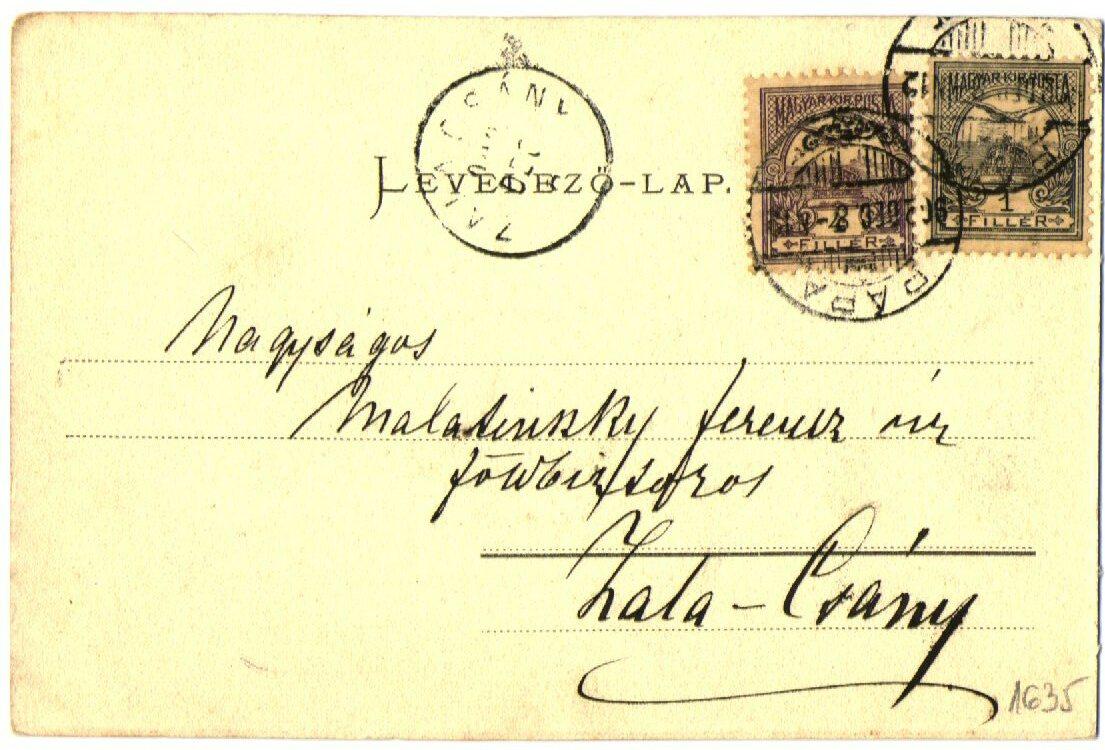 LEVELEZŐ-LAP.
ZALACSÁNY
MAGYAR KIR. POSTA
FILLÉR
MAGYAR KIR. POSTA
1
FILLÉR
PÁPA
Nagyságos
Malatinszky Ferencz úr
földbirtokos
Zala-Csány
1635